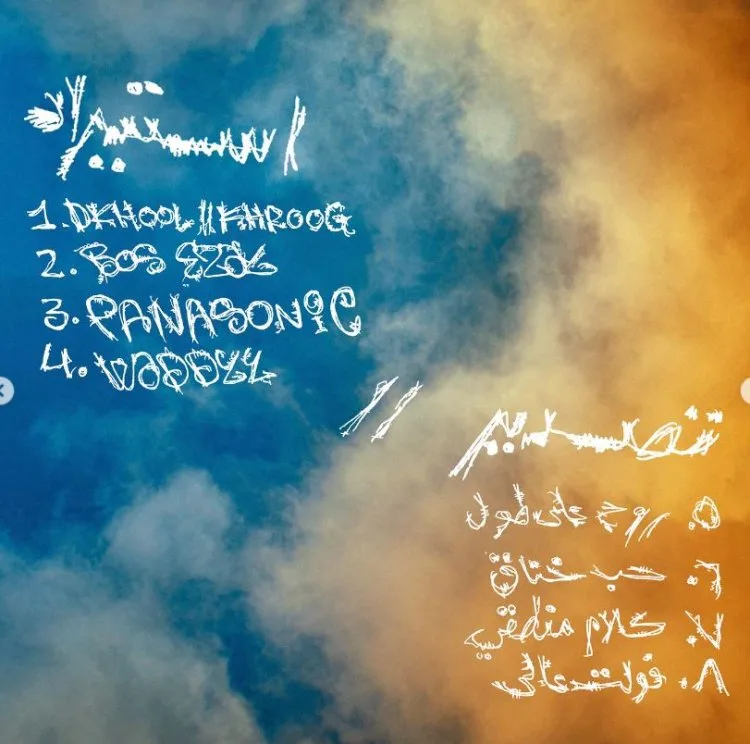 استيراد
1. DKHOOL // KHROOG
2. BOS EZAY
3. PANASONIC
4. WADDYY
//
تصدير
٥. روح على طول
٦. حب خناق
٧. كلام منطقي
٨. فولت عالي